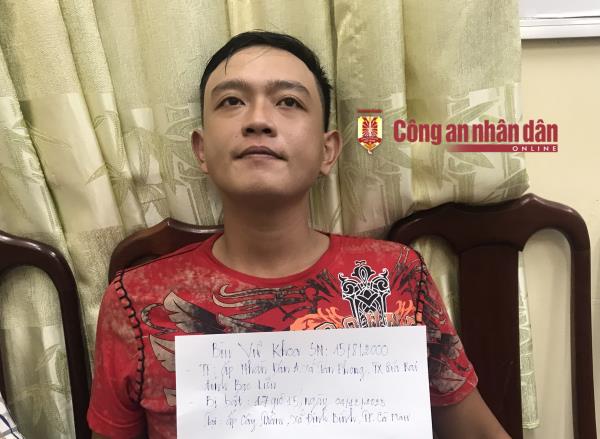 Công an nhân dân
ONLINE
Bùi Vũ Khoa SN: 15/8/2000
- TT: ấp Nhàn Dân A, xã Tân Phong, TX Giá Rai
tỉnh Bạc Liêu
- Bị bắt: 17 giờ 15, ngày
Tại: ấp Cây Trâm, xã Định Bình, TP. Cà Mau